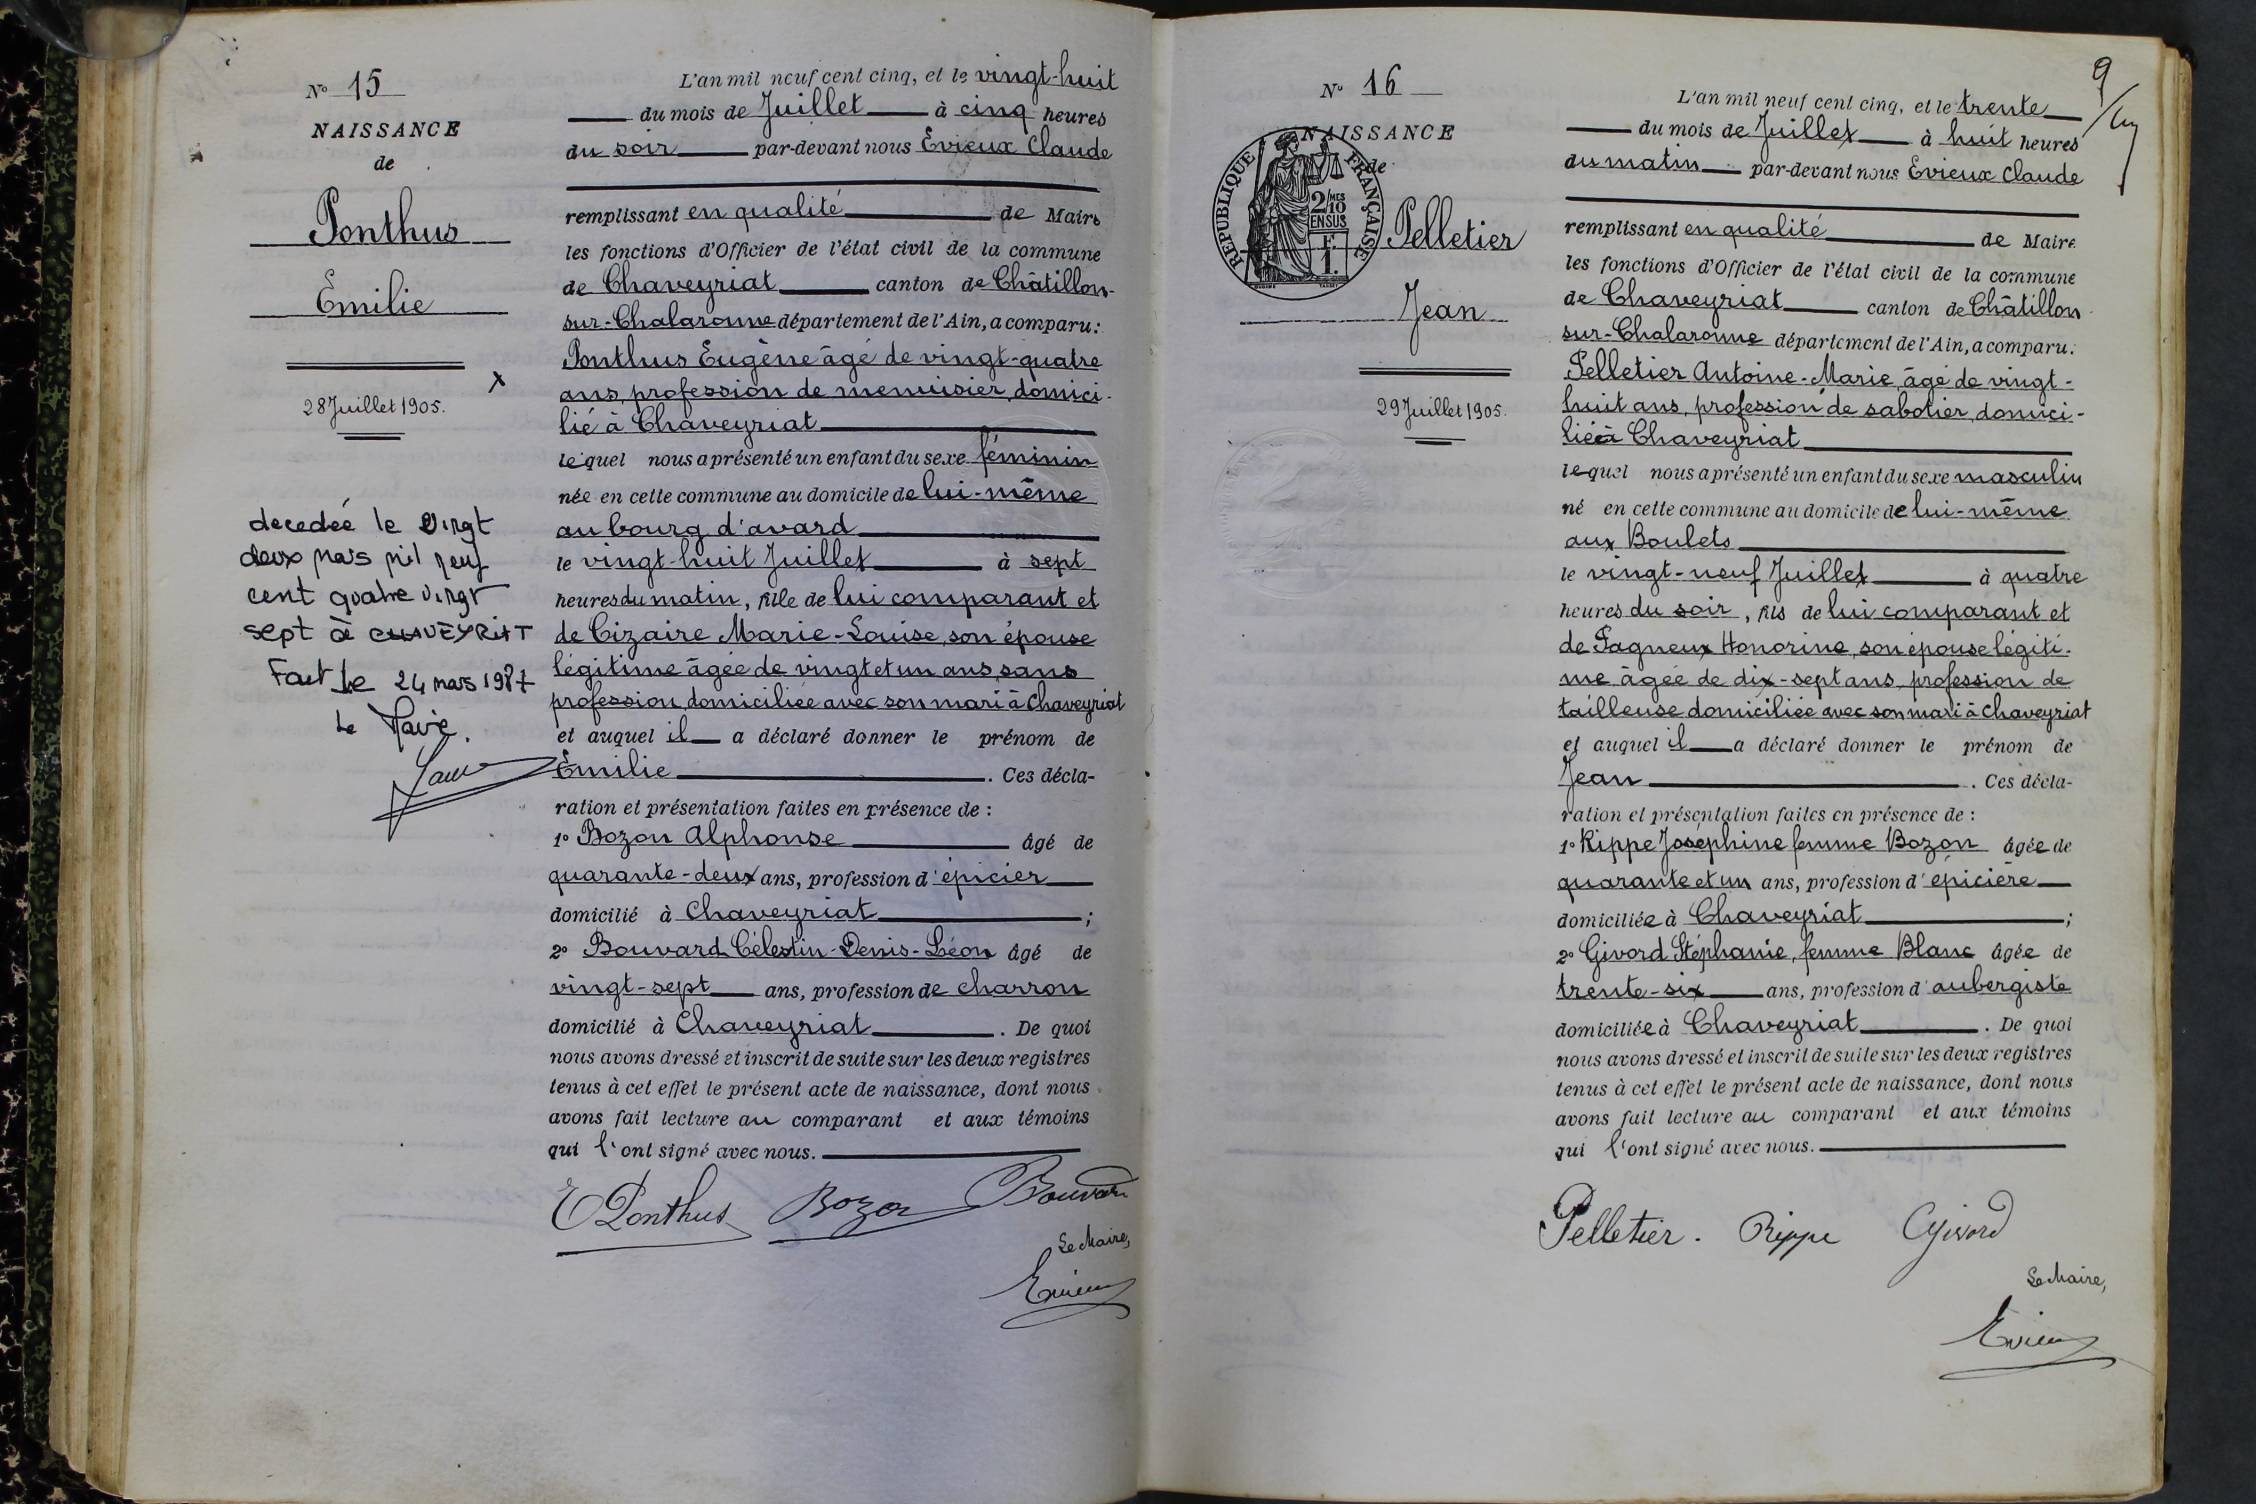 N° 15
NAISSANCE
de
Ponthus
Emilie
28 Juillet 1905.
decedée le vingt
deux mars mil neuf
cent quatre vingt
sept à CHAVEYRIAT
Fait le 24 mars 1987
Le Maire.
L'an mil neuf cent cinq, et le vingt-huit
du mois de Juillet à cinq heures
du soir par-devant nous Evieux Claude
remplissant en qualité de Maire
les fonctions d'Officier de l'état civil de la commune
de Chaveyriat canton de Châtillon-
sur-Chalaronne département de l'Ain, a comparu:
Ponthus Eugène âgé de vingt-quatre
ans, profession de menuisier, domici-
lié à Chaveyriat
lequel nous a présenté un enfant du sexe féminin
née en cette commune au domicile de lui-même
au bourg d'avard
le vingt-huit Juillet à sept
heures du matin, fille de lui comparant et
de Cizaire Marie-Louise, son épouse
légitime âgée de vingt et un ans, sans
profession, domiciliée avec son mari à Chaveyriat
et auquel il a déclaré donner le prénom de
Emilie. Ces décla-
ration et présentation faites en présence de :
1° Bozon Alphonse âgé de
quarante-deux ans, profession d'épicier
domicilié à Chaveyriat ;
2° Bouvard Célestin-Denis-Léon âgé de
vingt-sept ans, profession de charron
domicilié à Chaveyriat. De quoi
nous avons dressé et inscrit de suite sur les deux registres
tenus à cet effet le présent acte de naissance, dont nous
avons fait lecture au comparant et aux témoins
qui l'ont signé avec nous.
E Ponthus Bozon Bouvard
Le Maire,
Evieux
9
N° 16
NAISSANCE
de
REPUBLIQUE FRANÇAISE
2/10 MES
EN SUS
F.
1.
Pelletier
Jean
29 Juillet 1905.
L'an mil neuf cent cinq, et le trente
du mois de Juillet à huit heures
du matin par-devant nous Evieux Claude
remplissant en qualité de Maire
les fonctions d'Officier de l'état civil de la commune
de Chaveyriat canton de Châtillon
sur-Chalaronne département de l'Ain, a comparu:
Pelletier Antoine-Marie, âgé de vingt-
huit ans, profession de sabotier, domici-
lié à Chaveyriat
lequel nous a présenté un enfant du sexe masculin
né en cette commune au domicile de lui-même
aux Boulets
le vingt-neuf Juillet à quatre
heures du soir, fils de lui comparant et
de Pagneux Honorine, son épouse légiti-
me âgée de dix-sept ans, profession de
tailleuse domiciliée avec son mari à Chaveyriat
et auquel il a déclaré donner le prénom de
Jean. Ces décla-
ration et présentation faites en présence de :
1° Rippe Joséphine femme Bozon âgée de
quarante et un ans, profession d'épicière
domiciliée à Chaveyriat ;
2° Givord Stéphanie, femme Blanc âgée de
trente-six ans, profession d'aubergiste
domiciliée à Chaveyriat. De quoi
nous avons dressé et inscrit de suite sur les deux registres
tenus à cet effet le présent acte de naissance, dont nous
avons fait lecture au comparant et aux témoins
qui l'ont signé avec nous.
Pelletier. Rippe Givord
Le Maire,
Evieux